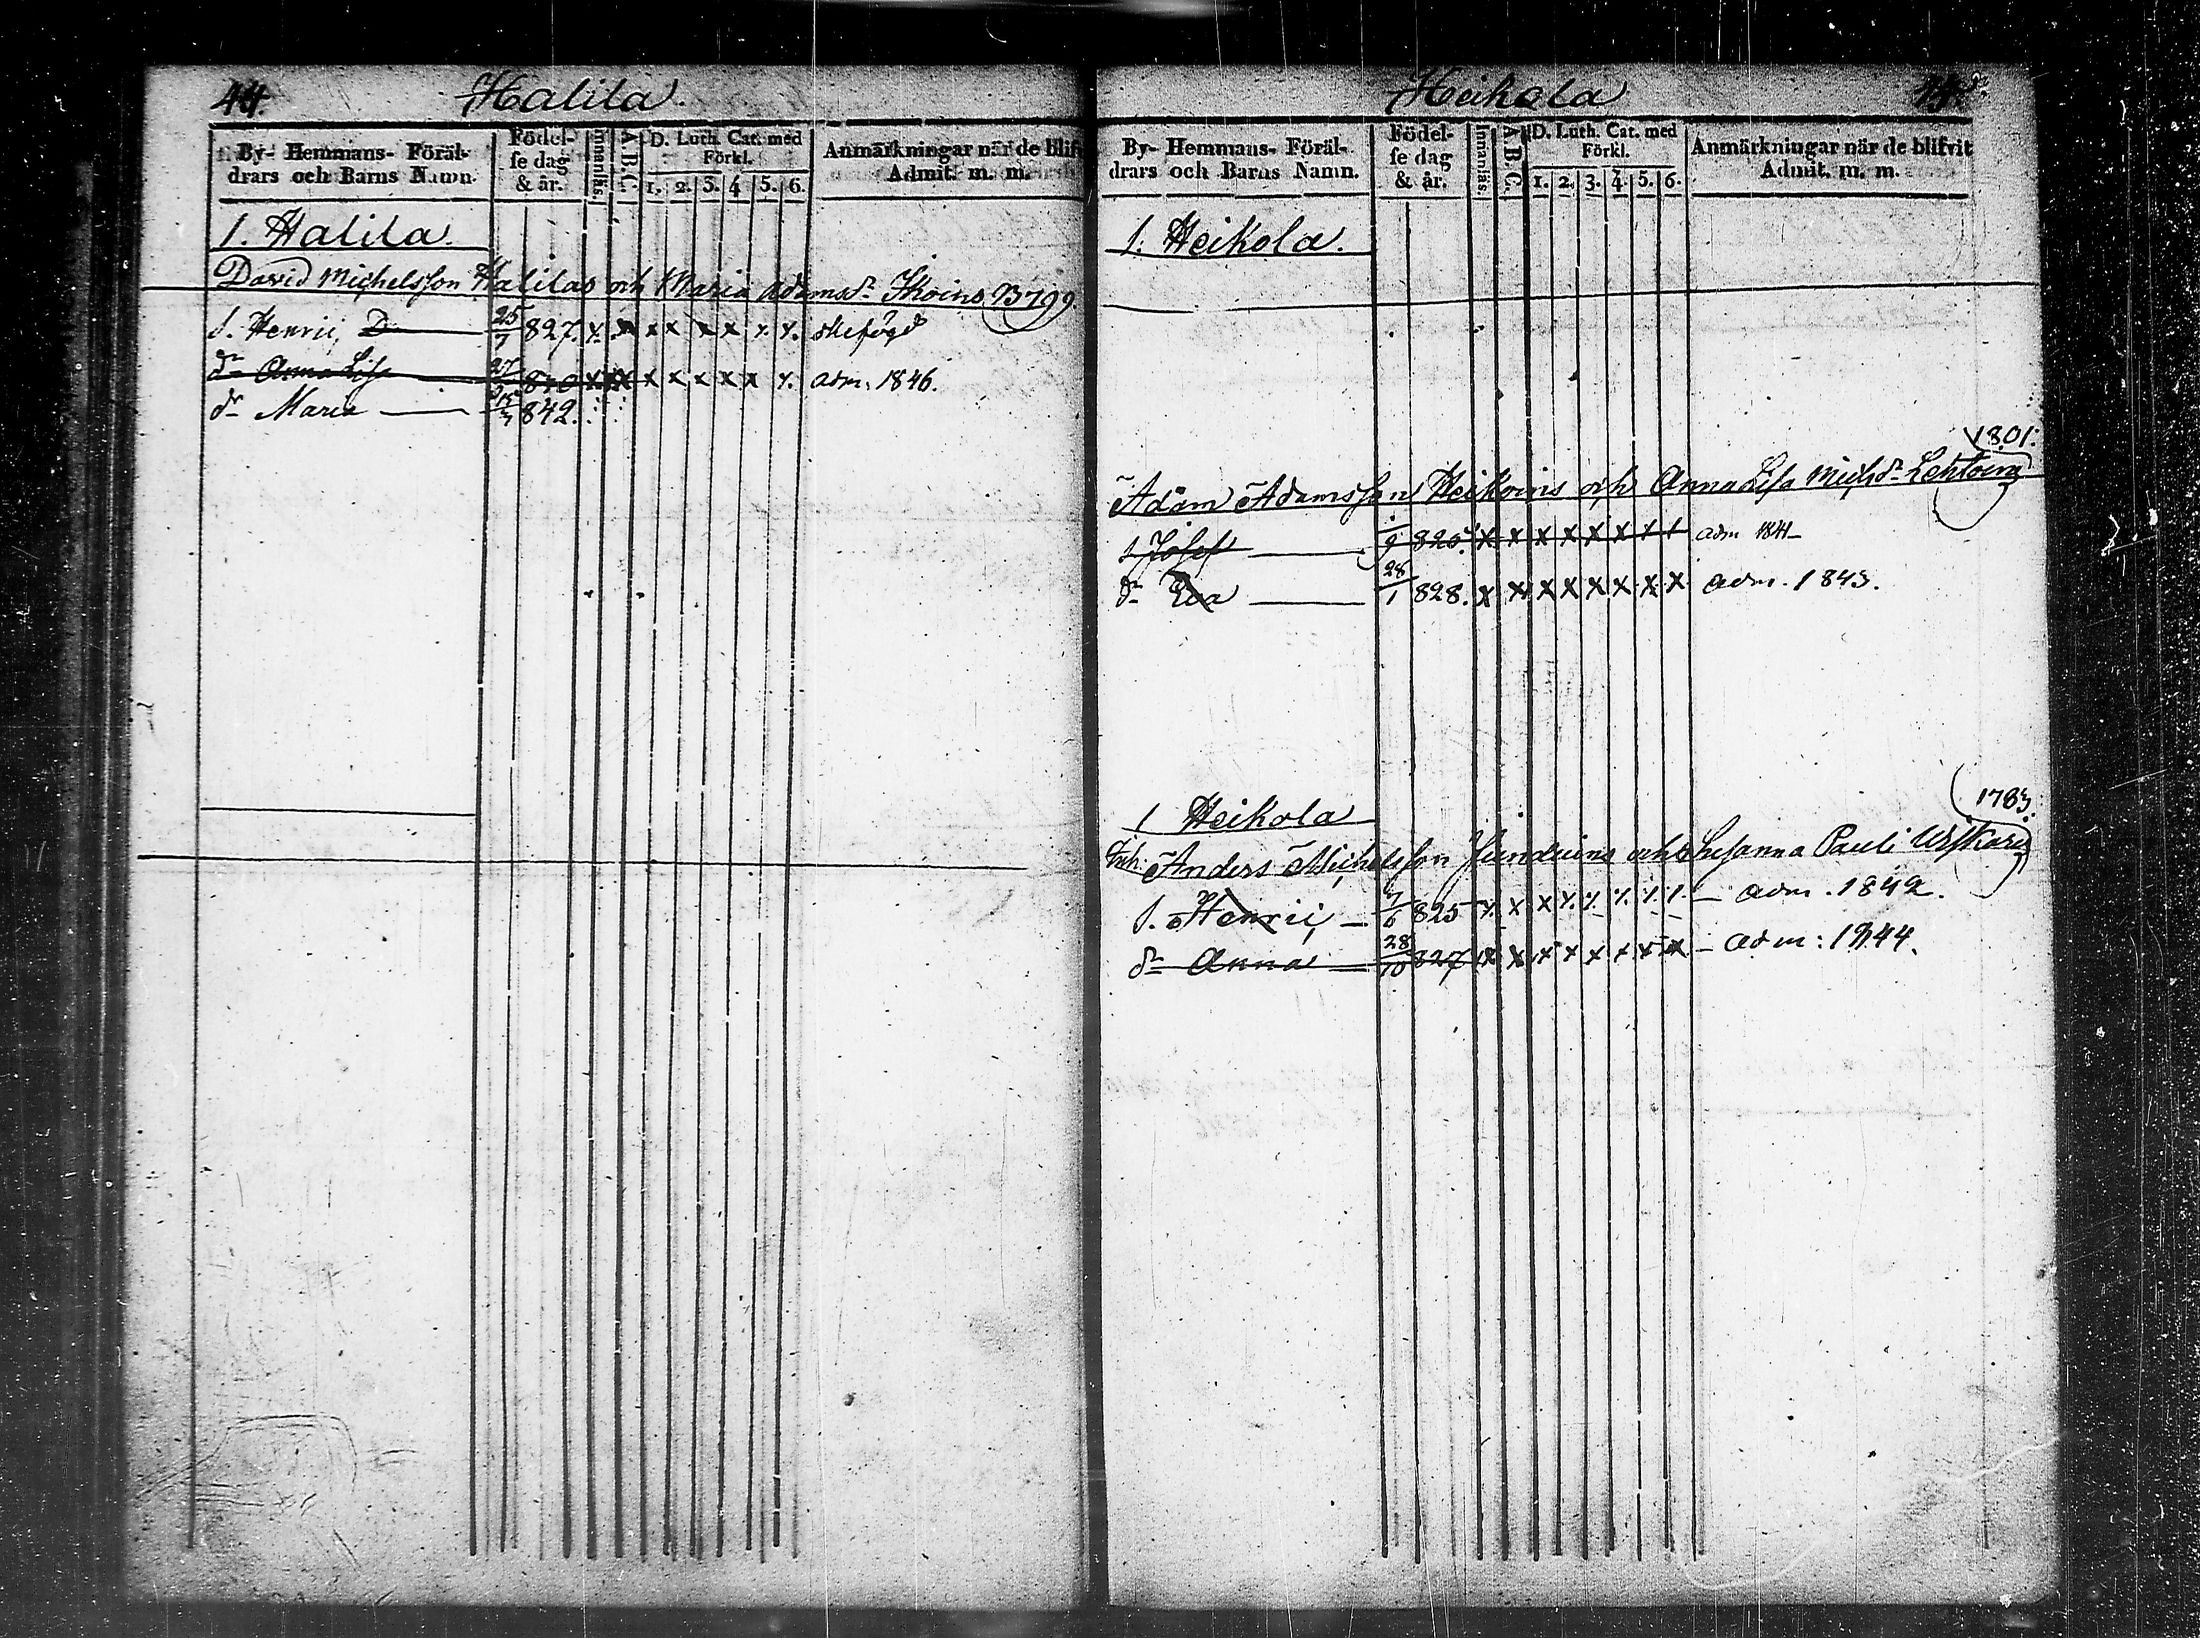 44. Halila.
By- Hemmans- Föräl-
drars och Barns Namn.
Födel-
se dag
& år.
Innanläs.
A B C.
D. Luth. Cat. med
Förkl.
1. 2. 3. 4 5. 6.
Anmärkningar när de blifv
Admit. m. m.
1. Halila.
David Michelsson Halilas och Maria Adamsdr
S. Henric, D 25/7 827. x x x x x x x x
dr Anna Lisa 27 x x x x x x x x adm. 1846.
dr Maria 842.
Heikola
By- Hemmans- Föräl-
drars och Barns Namn.
Födel-
se dag
& år.
Innanläs.
A B C.
D. Luth. Cat. med
Förkl.
1. 2. 3. 4. 5. 6.
Anmärkningar när de blifvit
Admit. m. m.
1. Heikola.
1801.
Adam Adamsson Heikoins och Anna Lisa Michdr
s Josef 9 x x x x x x x x adm 1841
dr Eva 28/1 828. x x x x x x x x adm. 1843.
1 Heikola
1783.
Inh: Anders Michelsson och Susanna Pauli
S. Henric 7/6 825 x x x x x x x x adm. 1842.
dr Anna 28/10 827 x x x x x x x x adm: 1844.